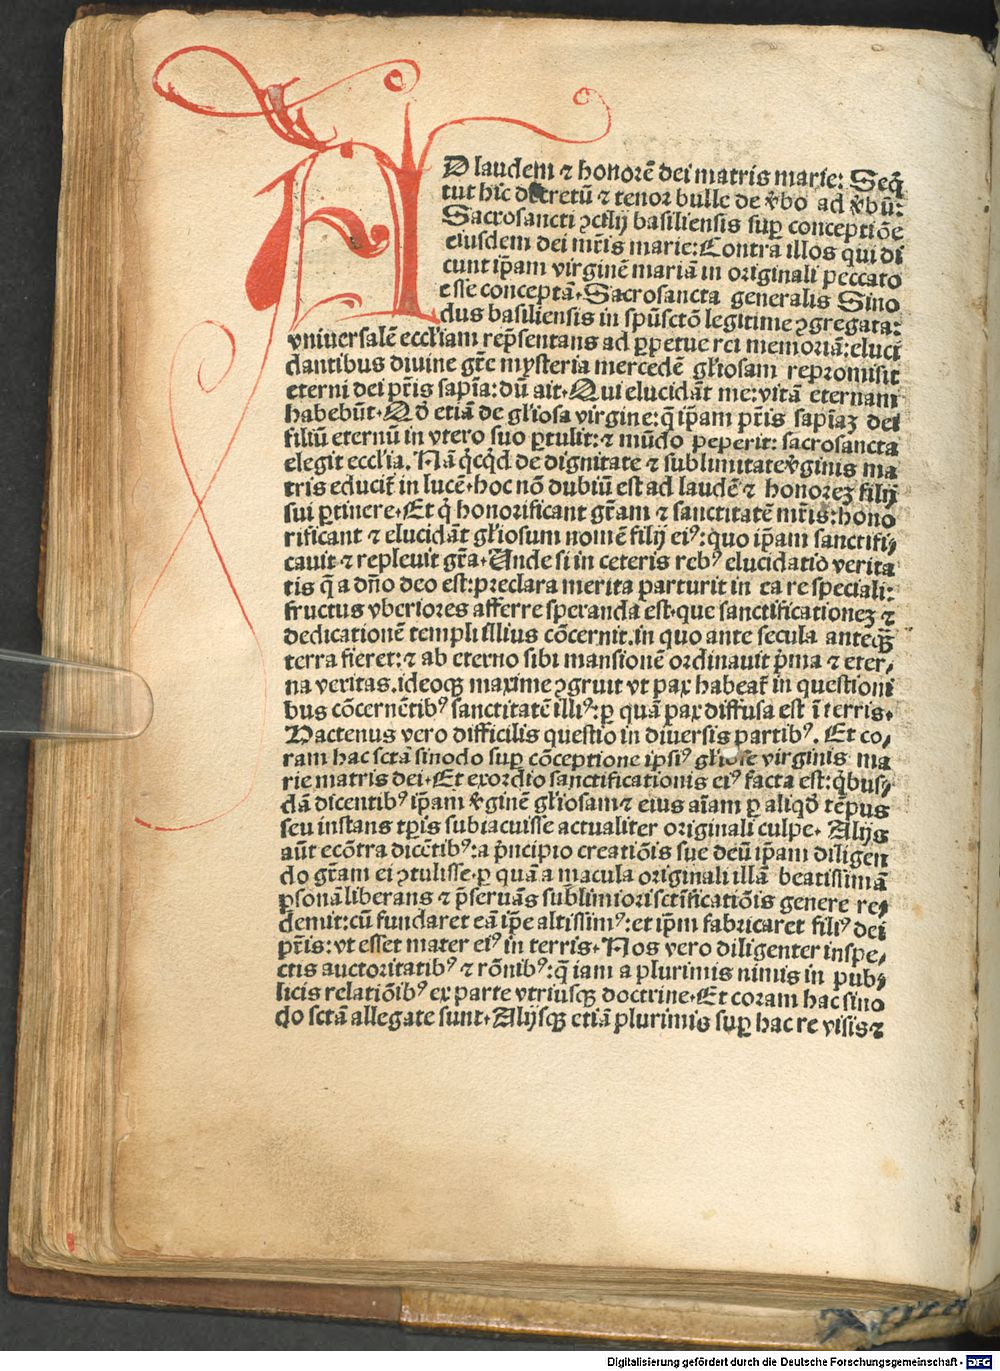 AD laudem ⁊ honorē dei matris marie: Seq̄
tut hic decretū ⁊ tenor bulle de v̓bo ad v̓bū:
Sacrosancti ꝯcilij basiliensis sup̱ conceptiōe
eiusdem dei mr̄is marie: Contra illos qui di
cunt ip̄am virginē mariā in originali peccato
esse conceptā. Sacrosancta generalis Sino
dus basiliensis in spūsctō legitime ꝯgregata:
vniuersalē eccl'iam rep̄sentans ad ꝑpetue rei memoriā: eluci
dantibus diuine gr̄e mysteria mercedē gl'iosam repromisit
eterni dei pr̄is sapīa: dū ait. Qui elucidāt me: vitā eternam
habebūt. Qd̄ etiā de gl'iosa virgine: q̄ ip̄am pr̄is sapīaꝫ dei
filiū eternū in vtero suo ꝑtulit: ⁊ mūdo peperit: sacrosancta
elegit eccl'ia. Nā q̇cq̇d de dignitate ⁊ sublimitate v̓ginis ma
tris educit̄ in lucē. hoc nō dubiū est ad laudē ⁊ honoreꝫ filij
sui ꝑtinere. Et q̇ honorificant gr̄am ⁊ sanctitatē mr̄is: hono
rificant ⁊ elucidāt gl'iosum nomē filij eiꝰ: quo ip̄am sanctifi⸗
cauit ⁊ repleuit gr̄a. Unde si in ceteris rebꝰ elucidatio verita
tis q̄ a dn̄o deo est: preclara merita parturit in ea re speciali:
fructus vberiores afferre speranda est. que sanctificationeꝫ ⁊
dedicationē templi illius cōcernit. in quo ante secula anteq̄ꝫ
terra fieret: ⁊ ab eterno sibi mansionē ordinauit p̓ma ⁊ eter⸗
na veritas. ideoqꝫ maxime ꝯgruit vt pax habeat̄ in questioni
bus cōcernētibꝰ sanctitatē illiꝰ: ꝑ quā pax diffusa est ī terris.
Hactenus vero difficilis questio in diuersis partibꝰ. Et co⸗
ram hac sctā sinodo sup̱ cōceptione ipsiꝰ gl'iose virginis ma
rie matris dei. Et exordio sanctificationis eiꝰ facta est: q̇bus⸗
dā dicentibꝰ ip̄am v̓ginē gl'iosam ⁊ eius aīam ꝑ aliqd̄ tēpus
seu instans tꝑis subiacuisse actualiter originali culpe. Alijs
aūt ecōtra dicētibꝰ: a p̓ncipio creatiōis sue deū ip̄am diligen
do gr̄am ei ꝯtulisse. ꝑ quā a macula originali illā beatissimā
ꝑsonā liberans ⁊ p̄seruās sublimiori sctīficatiōis genere re⸗
demit: cū fundaret eā ip̄e altissimꝰ: et ip̄m fabricaret filiꝰ dei
pr̄is: vt esset mater eiꝰ in terris. Nos vero diligenter inspe⸗
ctis auctoritatibꝰ ⁊ rōnibꝰ: q̄ iam a plurimis nimis in pub⸗
licis relatiōibꝰ ex parte vtriusqꝫ doctrine. Et coram hac sino
do sctā allegate sunt. Alijsqꝫ etiā plurimis sup̱ hac re visis ⁊
Digitalisierung gefördert durch die Deutsche Forschungsgemeinschaft - DFG